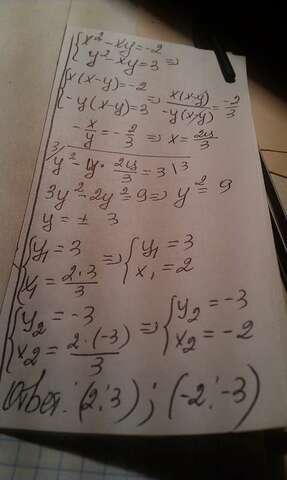 {x² - xy = -2
{y² - xy = 3 ⇒
{x(x-y) = -2
{-y(x-y) = 3 ⇒ x(x-y)/-y(x-y) = -2/3
-x/y = -2/3 ⇒ x = 2y/3
y² - y · 2y/3 = 3 \3
3y² - 2y² = 9 ⇒ y² = 9
y = ± 3
{y₁ = 3 ⇒ {y₁ = 3
{x₁ = 2·3/3 {x₁ = 2
{y₂ = -3 ⇒ {y₂ = -3
{x₂ = 2·(-3)/3 {x₂ = -2
Ответ: (2;3); (-2;-3)